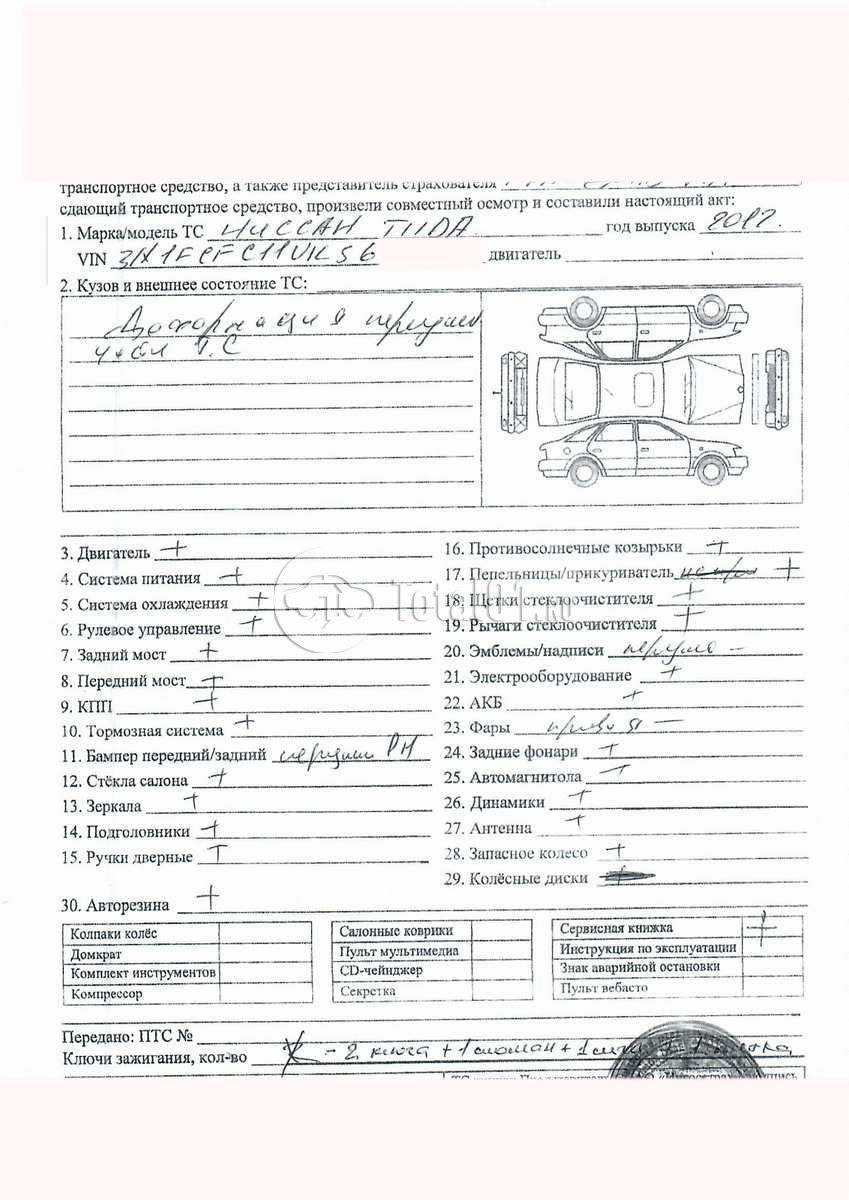 транспортное средство, а также представитель страхователя
сдающий транспортное средство, произвели совместный осмотр и составили настоящий акт:
1. Марка/модель ТС НИССАН TIIDA год выпуска 2012.
VIN 3N1FCFC11UK56 двигатель
2. Кузов и внешнее состояние ТС:
части Т.С
3. Двигатель +
4. Система питания +
5. Система охлаждения +
6. Рулевое управление +
7. Задний мост +
8. Передний мост +
9. КПП +
10. Тормозная система +
11. Бампер передний/задний передний РН
12. Стёкла салона +
13. Зеркала +
14. Подголовники +
15. Ручки дверные +
16. Противосолнечные козырьки +
17. Пепельницы/прикуриватель +
18. Щетки стеклоочистителя +
19. Рычаги стеклоочистителя +
20. Эмблемы/надписи –
21. Электрооборудование +
22. АКБ +
23. Фары правая –
24. Задние фонари +
25. Автомагнитола +
26. Динамики +
27. Антенна +
28. Запасное колесо +
29. Колёсные диски +
30. Авторезина +
Колпаки колёс
Домкрат
Комплект инструментов
Компрессор
Салонные коврики
Пульт мультимедиа
CD-чейнджер
Секретка
Сервисная книжка +
Инструкция по эксплуатации
Знак аварийной остановки
Пульт вебасто
Передано: ПТС №
Ключи зажигания, кол-во – 2 ключа + 1 сломан + 1
Total01.ru